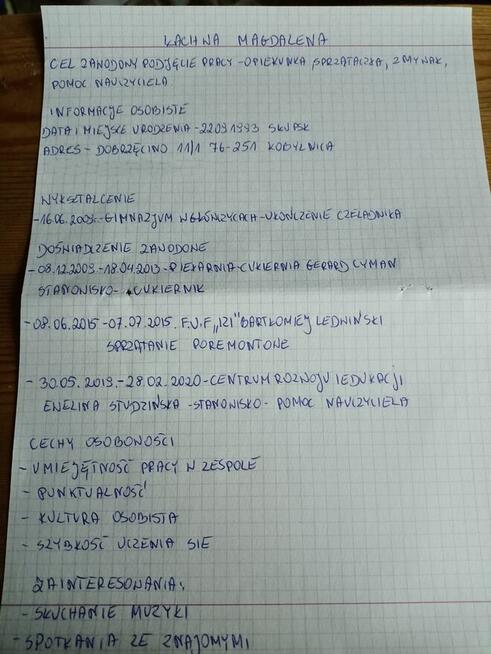 ŁACHWA MAGDALENA
CEL ZAWODONY PODJĘCIE PRACY - OPIEKUNKA SPRZĄTACZKA, ZMYWAK,
POMOC NAUCZYCIELA
INFORMACJE OSOBISTE
DATA I MIEJSKE URODZENIA - 22091993 SKUPSK
ADRES - DOBRZĘCINO 11/1 76-251 KOBYLNICA
WYKSTALCENIE
-16.06.2009.-GIMNAZJUM W GŁÓWCZYCACH-UKOŃCZENIE CZELADNIKA
DOŚWIADCZENIE ZAWODONE
-08.12.2009.-18.04.2013-PIEKARNIA-CUKIERNIA GERARD CYMAN
STANOWISKO- CUKIERNIK
-08.06.2015 -07.07.2015. F.U.F „IZI" BARTŁOMIEJ LEDWIŃSKI
SPRZĄTANIE POREMONTONE
- 30.05.2019.-28.02.2020-CENTRUM ROZWOJU I EDUKACJI
EWELINA STUDZIŃSKA -STANOWISKO- POMOC NAUCZYCIELA
CECHY OSOBOWOŚCI
- UMIEJĘTNOŚĆ PRACY W ZESPOLE
- PUNKTUALNOŚĆ
- KULTURA OSOBISTA
- SZYBKOŚĆ UCZENIA SIE
ZAINTERESOWANIA:
- SKUCHANIE MUZYKI
- SPOTKANIA ZE ZNAJOMYMI